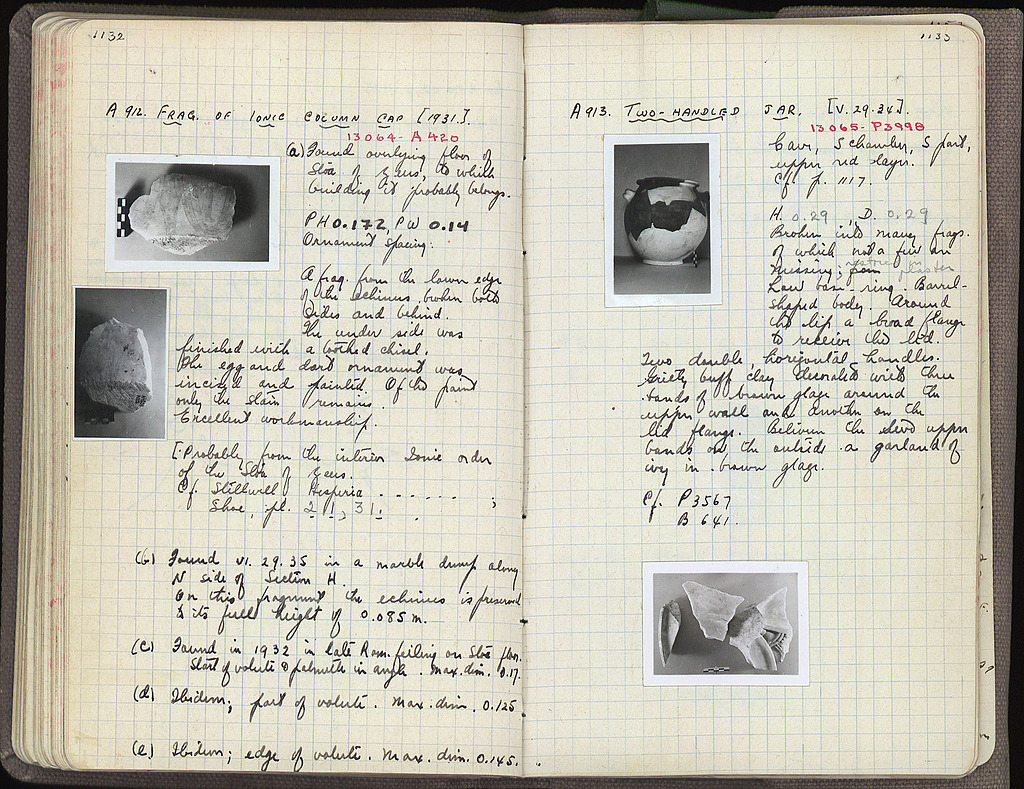 1132
A 912. FRAG. OF IONIC COLUMN CAP [1931].
13064 - A 420
(a) Found overlying floor of
Stoa of Zeus, to which
building it probably belongs.
PH 0.172, PW 0.14
Ornament spacing:
A frag. from the lower edge
of the echinus, broken both
sides and behind.
The under side was
finished with a toothed chisel.
The egg and dart ornament was
incised and painted. Of the paint
only the stain remains.
Excellent workmanship.
[Probably from the interior Ionic order
of the Stoa of Zeus.
Cf. Stillwell Hesperia . . . . . . ;
Shoe, pl. 21, 31.
(b) Found VI. 29. 35 in a marble dump along
N side of Section H.
On this fragment the echinus is preserved
to its full height of 0.085 m.
(c) Found in 1932 in late Rom. filling on Stoa floor.
Start of volute & palmette in angle. Max. dim. 0.17.
(d) Ibidem; part of volute. Max. dim. 0.125
(e) Ibidem; edge of volute. Max. dim. 0.145.
1133
A 913. TWO-HANDLED JAR. [V. 29. 34].
13065 - P3998
Cave, S chamber, S part,
upper red layer.
Cf. p. 1117.
H. 0.29, D. 0.29
Broken into many frags.
of which not a few are
missing; restored in plaster
Low base-ring. Barrel-
shaped body. Around
the lip a broad flange
to receive the lid.
Two double, horizontal handles.
Gritty buff clay decorated with three
bands of brown glaze around the
upper wall and another on the
lid flange. Between the upper
bands on the outside a garland of
ivy in brown glaze.
Cf. P 3567
B 641.